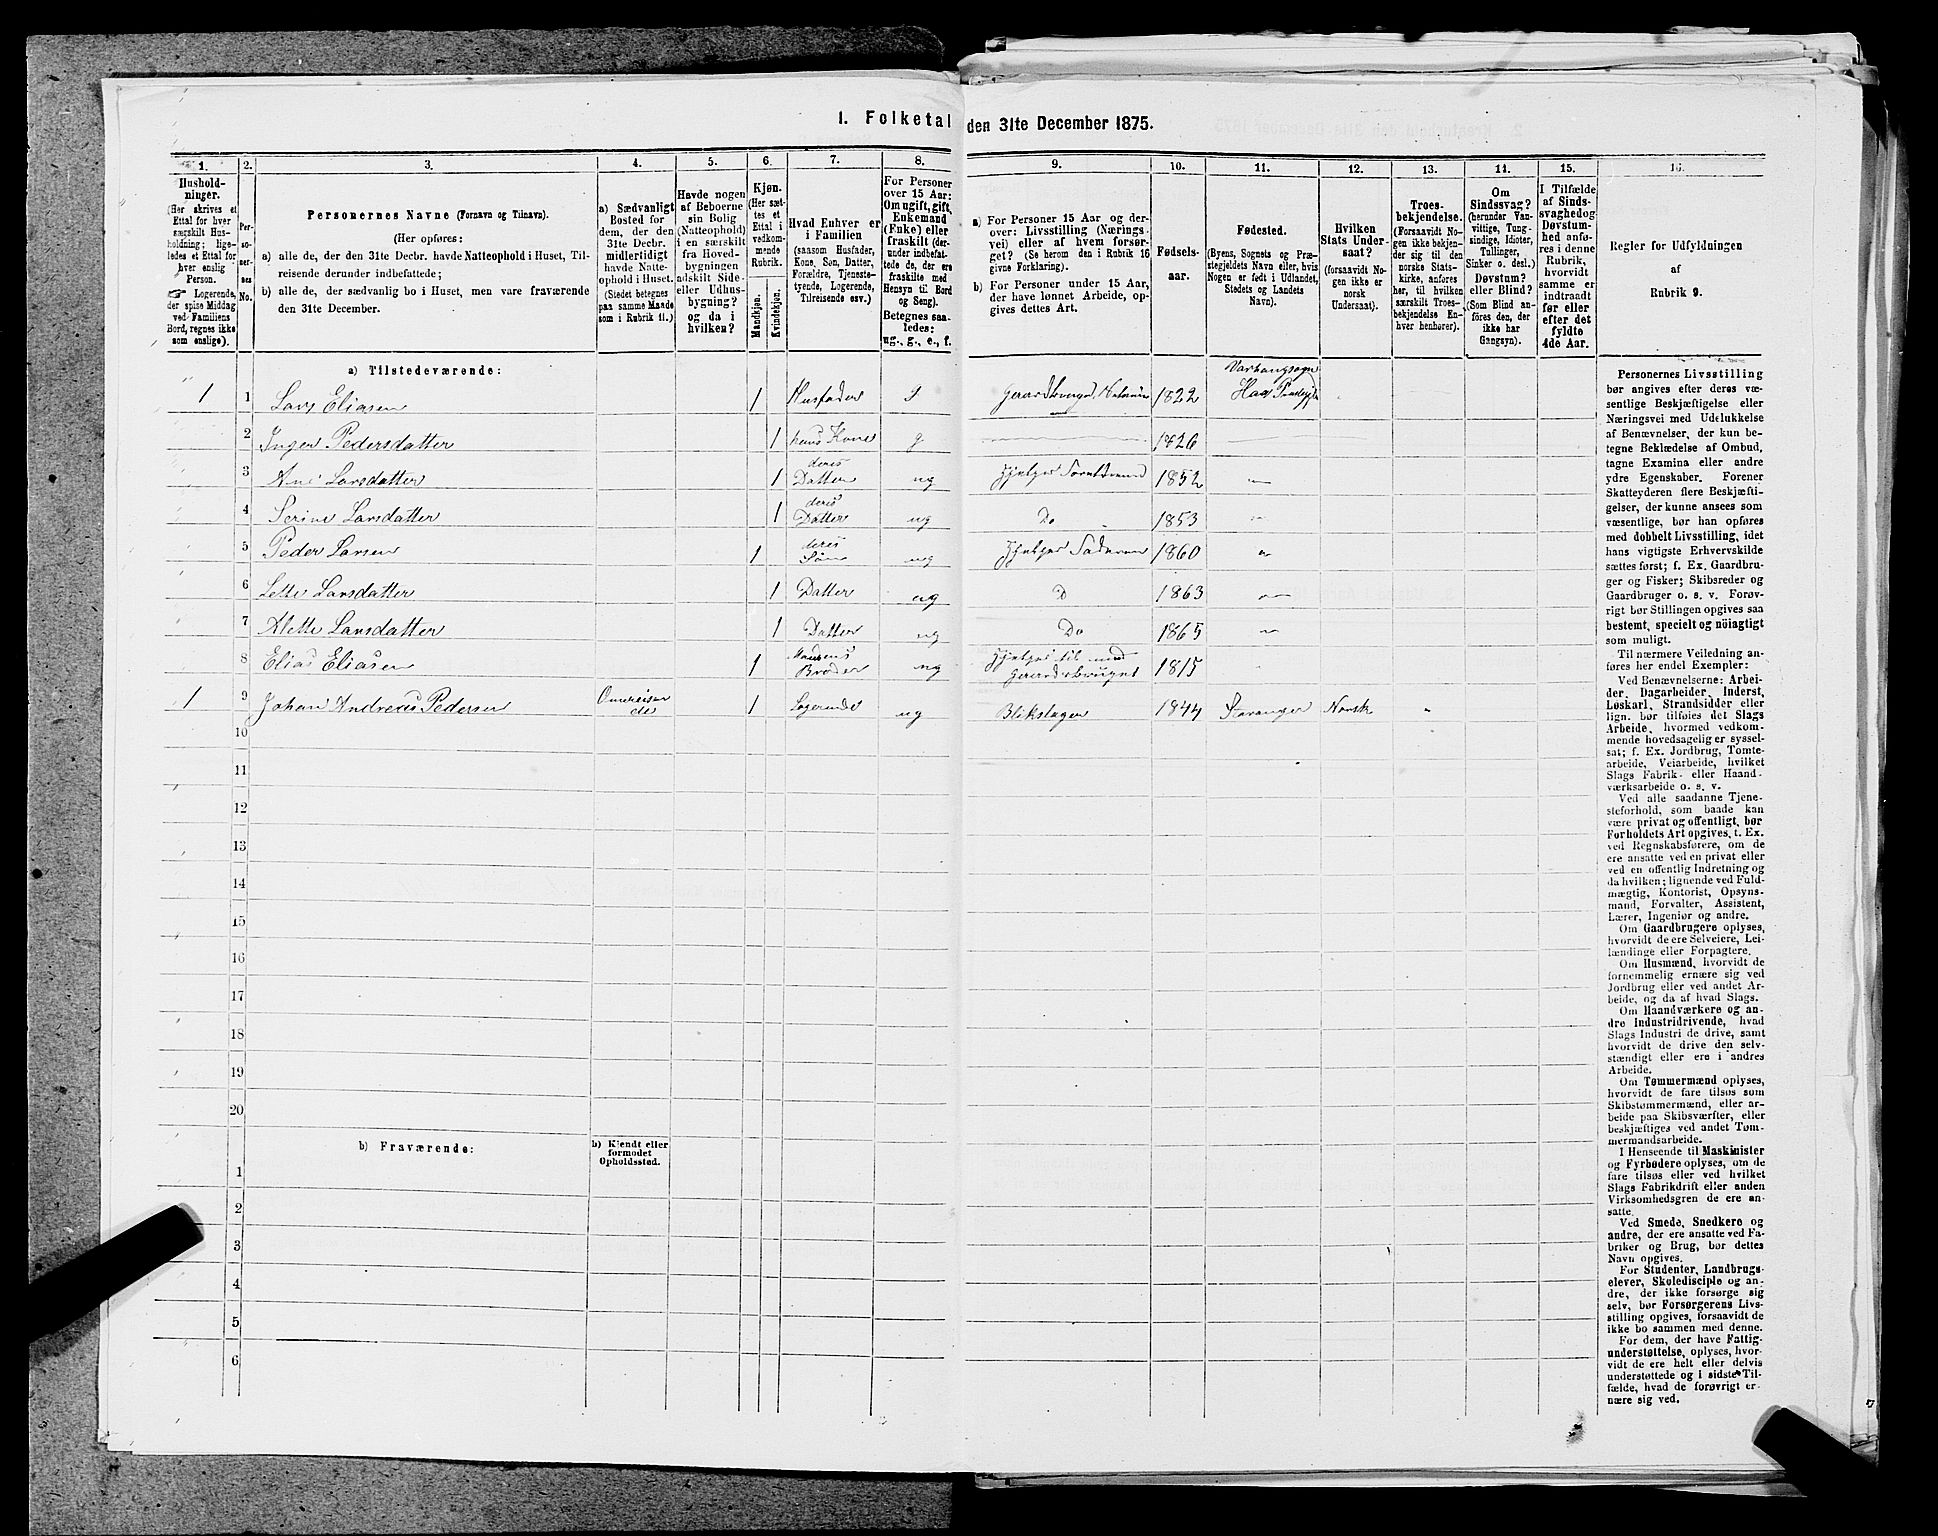 1. Folketal den 31te December 1875.
1.
2.
3.
4.
5.
6.
7.
8.
9.
10.
11.
12.
13.
14.
15.
16.
Hushold-
ninger.
(Her skrives et
Ettal for hver
særskilt Hus-
holdning; lige-
ledes et Ettal for
hver enslig
Person.
☞ Logerende,
der spise Middag
ved Familiens
Bord, regnes ikke
som enslige).
Per-
so-
ner-
nes
No.
Personernes Navne (Fornavn og Tilnavn).
(Her opføres:
a) alle de, der den 31te Decbr. havde Natteophold i Huset, Til-
reisende derunder indbefattede;
b) alle de, der sædvanlig bo i Huset, men vare fraværende
den 31te December.
a) Sædvanligt
Bosted for
dem, der den
31te Decbr.
midlertidigt
havde Natte-
ophold i Huset.
(Stedet betegnes
paa samme Maade
som i Rubrik 11.)
Havde nogen
af Beboerne
sin Bolig
(Natteophold)
i en særskilt
fra Hoved-
bygningen
adskilt Side-
eller Udhus-
bygning?
og da i
hvilken?
Kjøn.
(Her sæt-
tes et
Ettal i
vedkom-
mende
Rubrik.
Mandkjøn.
Kvindekjøn.
Hvad Enhver er
i Familien
(saasom Husfader,
Kone, Søn, Datter,
Forældre, Tjeneste-
tyende, Logerende,
Tilreisende osv.)
For Personer
over 15 Aar:
Om ugift, gift,
Enkemand
(Enke) eller
fraskilt (der-
under indbefat-
tede de, der ere
fraskilte med
Hensyn til Bord
og Seng).
Betegnes saa-
ledes:
ug., g., e., f.
a) For Personer 15 Aar og der-
over: Livsstilling (Nærings-
vei) eller af hvem forsør-
get? (Se herom den i Rubrik 16
givne Forklaring).
b) For Personer under 15 Aar,
der have lønnet Arbeide, op-
gives dettes Art.
Fødsels-
aar.
Fødested.
(Byens, Sognets og Præ-
stegjeldets Navn eller, hvis
Nogen er født i Udlandet,
Stedets og Landets
Navn).
Hvilken
Stats Under-
saat?
(forsaavidt No-
gen ikke er
norsk
Undersaat).
Troes-
bekjendelse.
(Forsaavidt No-
gen ikke bekjen-
der sig til den
norske Stats-
kirke, anføres
her, til hvilken
særskilt Troes-
bekjendelse En-
hver henhører).
Om
Sindssvag?
(herunder Van-
vittige, Tung-
sindige, Idioter,
Tullinger,
Sinker o. desl.)
Døvstum?
eller Blind?
(Som Blind an-
føres den, der
ikke har
Gangsyn).
I Tilfælde
af Sinds-
svaghed og
Døvstum-
hed anfø-
res i denne
Rubrik,
hvorvidt
samme er
indtraadt
før eller
efter det
fyldte
4de Aar.
Regler for Udfyldningen
af
Rubrik 9.
a) Tilstedeværende:
1 1 Lars Eliasen 1 Husfader g 1822 Haa
2 Inger Pedersdatter 1 hans Kone g 1826
3 Ane Larsdatter 1 deres Datter ug 1852
4 Serine Larsdatter 1 deres Datter ug Do 1853
5 Peder Larsen 1 deres Søn ug Hjelper Faderen 1860
6 Lette Larsdatter 1 Datter ug D 1863
7 Alette Larsdatter 1 Datter ug Do 1865
8 Elias Eliasen 1 Mandens Broder ug Hjelper til med 1815
1 9 Johan Andreas Pedersen Omreisende 1 Logerende ug Blikslager 1844 Stavanger Norsk
10
11
12
13
14
15
16
17
18
19
20
b) Fraværende:
b) Kjendt eller
formodet
Opholdssted.
1
2
3
4
5
6
Personernes Livsstilling
bør angives efter deres væ-
sentlige Beskjæftigelse eller
Næringsvei med Udelukkelse
af Benævnelser, der kun be-
tegne Beklædelse af Ombud,
tagne Examina eller andre
ydre Egenskaber. Forener
Skatteyderen flere Beskjæfti-
gelser, der kunne ansees som
væsentlige, bør han opføres
med dobbelt Livsstilling, idet
hans vigtigste Erhvervskilde
sættes først; f. Ex. Gaardbru-
ger og Fisker; Skibsreder og
Gaardbruger o. s. v. Forøv-
rigt bør Stillingen opgives saa
bestemt, specielt og nöiagtigt
som muligt.
Til nærmere Veiledning an-
føres her endel Exempler:
Ved Benævnelserne: Arbei-
der, Dagarbeider, Inderst,
Løskarl, Strandsidder eller
lign. bør tilføies det Slags
Arbeide, hvormed vedkom-
mende hovedsagelig er syssel-
sat; f. Ex. Jordbrug, Tomte-
arbeide, Veiarbeide, hvilket
Slags Fabrik- eller Haand-
værksarbeide o. s. v.
Ved alle saadanne Tjene-
steforhold, som baade kan
være privat og offentligt, bør
Forholdets Art opgives, t. Ex.
ved Regnskabsførere, om de
ere ansatte ved en privat eller
ved en offentlig Indretning og
da hvilken; lignende ved Fuld-
mægtig, Kontorist, Opsyns-
mand, Forvalter, Assistent,
Lærer, Ingeniør og andre.
Om Gaardbrugere oplyses,
hvorvidt de ere Selveiere, Lei-
lændinge eller Forpagtere.
Om Husmænd, hvorvidt de
fornemmelig ernære sig ved
Jordbrug eller ved andet Ar-
beide, og da af hvad Slags.
Om Haandværkere og an-
dre Industridrivende, hvad
Slags Industri de drive, samt
hvorvidt de drive den selv-
stændigt eller ere i andres
Arbeide.
Om Tømmermænd oplyses,
hvorvidt de fare tilsøs som
Skibstømmermænd, eller ar-
beide paa Skibsværfter, eller
beskjæftiges ved andet Tøm-
mermandsarbeide.
I Henseende til Maskinister
og Fyrbødere oplyses, om de
fare tilsøs eller ved hvilket
Slags Fabrikdrift eller anden
Virksomhedsgren de ere an-
satte.
Ved Smede, Snedkere og
andre, der ere ansatte ved Fa-
briker og Brug, bør dettes
Navn opgives.
For Studenter, Landbrugs-
elever, Skoledisciple og an-
dre, der ikke forsørge sig
selv, bør Forsørgerens Livs-
stilling opgives, forsaavidt de
ikke bo sammen med denne.
For dem, der have Fattig-
understøttelse, oplyses, hvor-
vidt de ere helt eller delvis
understøttede og i sidste Til-
fælde, hvad de forøvrigt er-
nære sig ved.